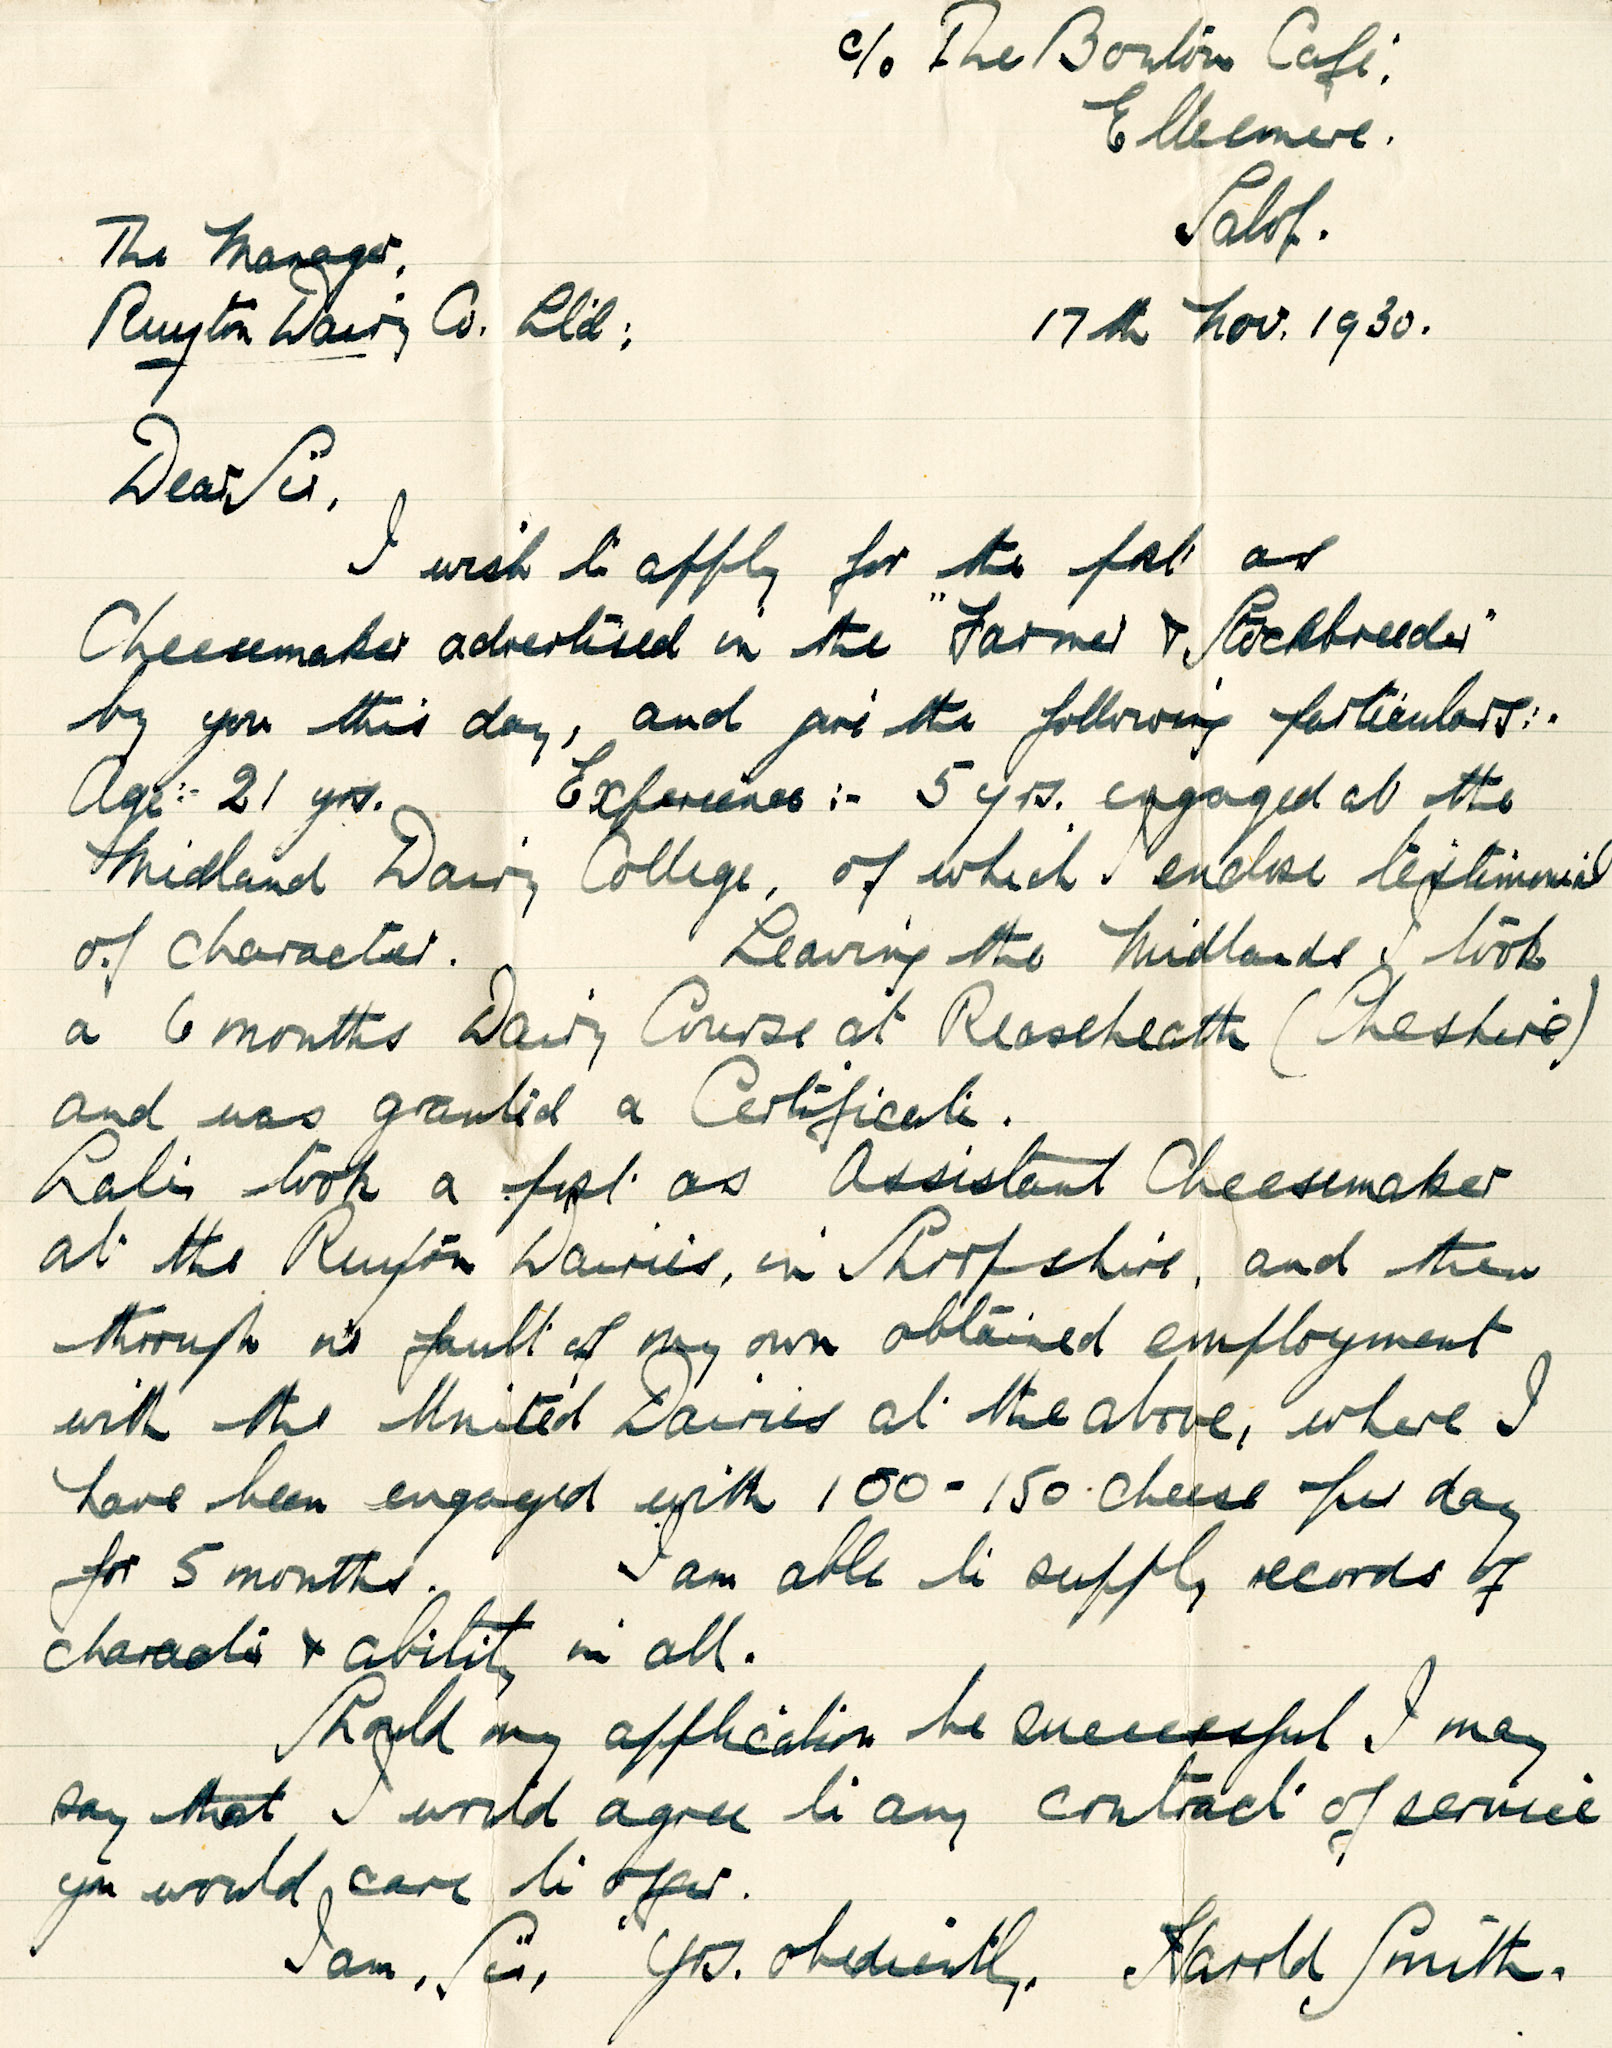 c/o The Bonton Café,
Ellesmere.
Salop.
The Manager,
Ruyton Dairy Co. Ltd;
17th Nov. 1930.
Dear Sir,
I wish to apply for the post as
Cheesemaker advertised in the "Farmer & Stockbreeder"
by you this day, and give the following particulars:-
Age:- 21 yrs. Experience:- 5 yrs. engaged at the
Midland Dairy College, of which I enclose testimonial
of character. Leaving the Midlands I took
a 6 months Dairy Course at Reaseheath (Cheshire)
and was granted a Certificate.
Later took a post as Assistant Cheesemaker
at the Ruyton Dairies, in Shropshire, and then
through no fault of my own obtained employment
with the United Dairies at the above, where I
have been engaged with 100-150 cheese per day
for 5 months. I am able to supply records of
character & ability in all.
Should my application be successful I may
say that I would agree to any contract of service
you would care to offer.
I am, Sir, Yrs. obediently, Harold Smith.